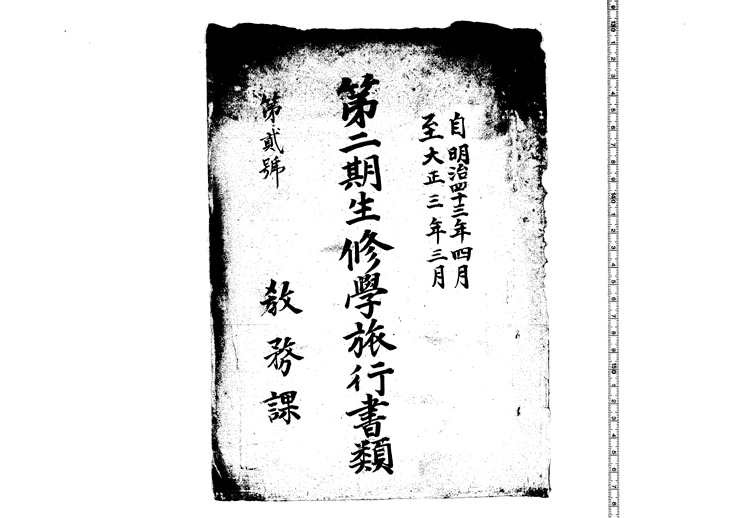 自明治四十三年四月
至大正三年三月
第二期生修學旅行書類
第貳號
教務課